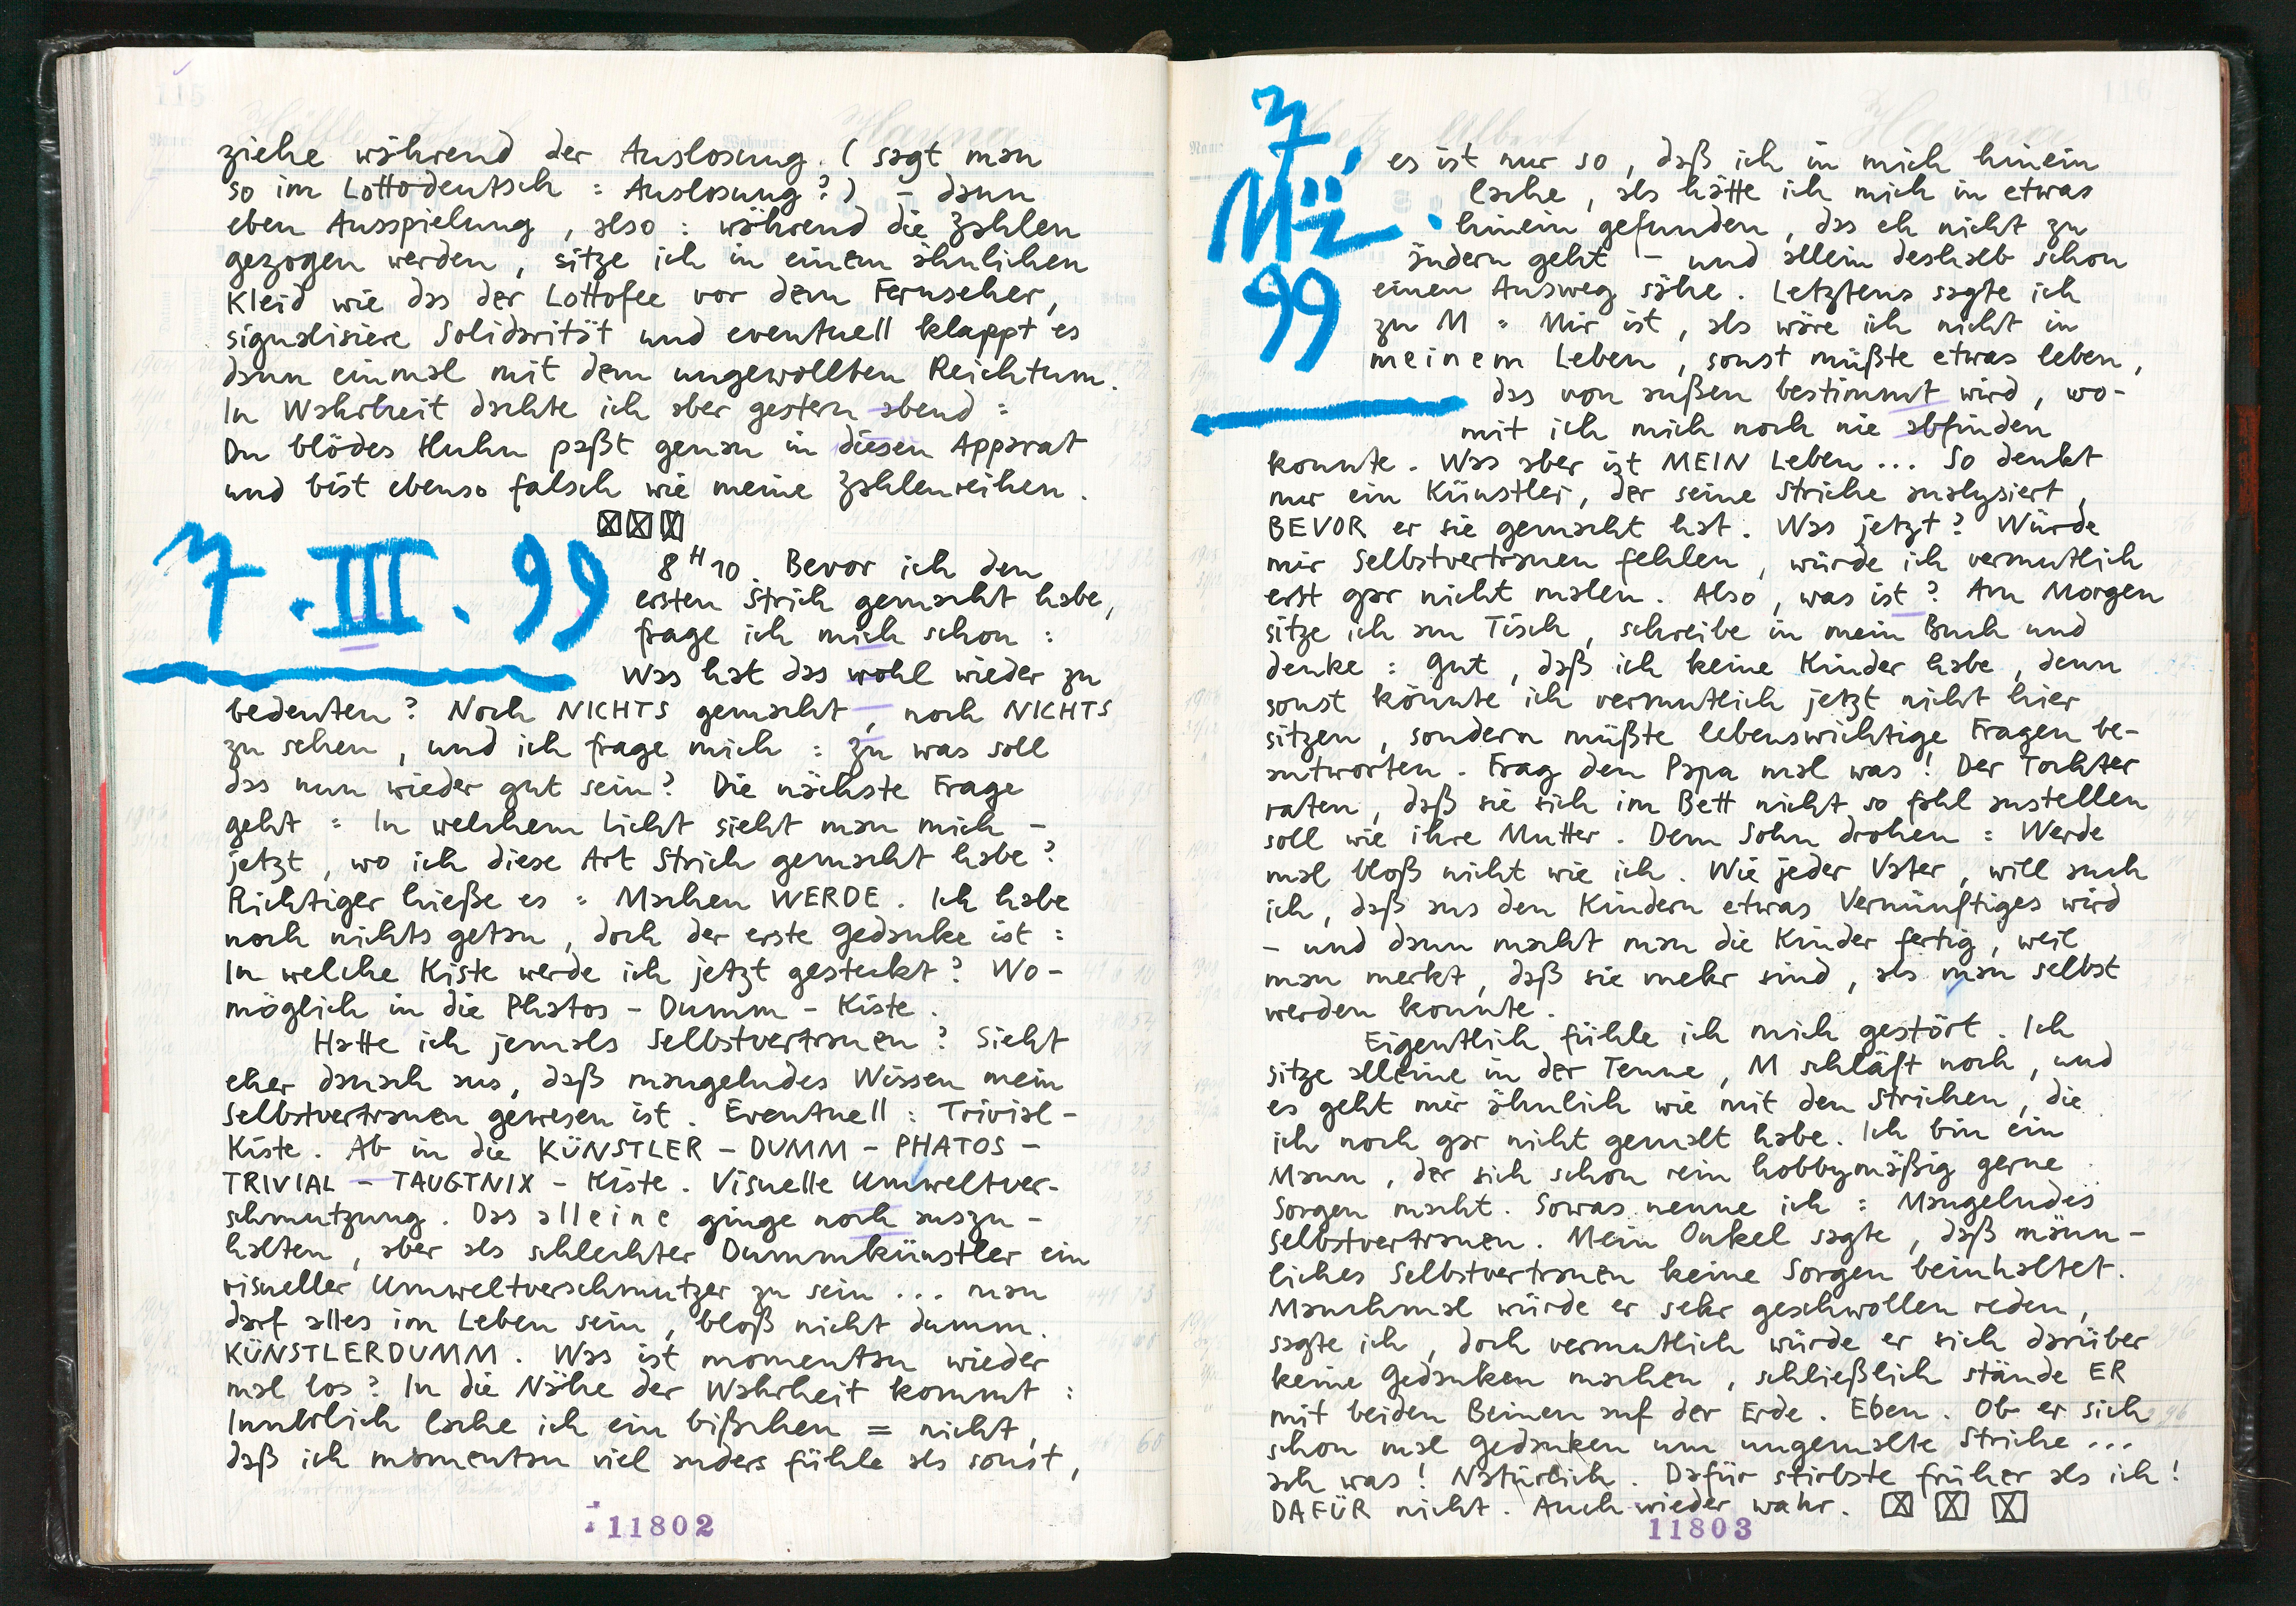 ziehe während der Auslosung. ( sagt man
so im Lottodeutsch : Auslosung ? ) – dann
eben Ausspielung , also : während die Zahlen
gezogen werden , sitze ich in einem ähnlichen
Kleid wie das der Lottofee vor dem Fernseher,
signalisiere Solidarität und eventuell klappt es
dann einmal mit dem ungewollten Reichtum.
In Wahrheit dachte ich aber gestern abend :
Du blödes Huhn paßt genau in diesen Apparat
und bist ebenso falsch wie meine Zahlenreihen.
7. III. 99
8 H 10. Bevor ich den
ersten Strich gemacht habe,
frage ich mich schon :
Was hat das wohl wieder zu
bedeuten ? Noch NICHTS gemacht , noch NICHTS
zu sehen , und ich frage mich : zu was soll
das nun wieder gut sein ? Die nächste Frage
geht : In welchem Licht sieht man mich –
jetzt , wo ich diese Art Strich gemacht habe ?
Richtiger hieße es : Machen WERDE. Ich habe
noch nichts getan , doch der erste Gedanke ist :
In welche Kiste werde ich jetzt gesteckt ? Wo-
möglich in die Phatos – Dumm – Kiste.
Hatte ich jemals Selbstvertrauen ? Sieht
eher danach aus, daß mangelndes Wissen mein
Selbstvertrauen gewesen ist. Eventuell : Trivial –
Kiste. Ab in die KÜNSTLER – DUMM – PHATOS –
TRIVIAL – TAUGTNIX – Kiste. Visuelle Umweltver-
schmutzung. Das alleine ginge noch auszu-
halten , aber als schlechter Dummkünstler ein
visueller Umweltverschmutzer zu sein ... man
darf alles im Leben sein , bloß nicht dumm.
KÜNSTLERDUMM. Was ist momentan wieder
mal los ? In die Nähe der Wahrheit kommt :
Innerlich lache ich ein bißchen = nicht,
daß ich momentan viel anders fühle als sonst,
11802
7. März 99
es ist nur so , daß ich in mich hinein
lache , als hätte ich mich in etwas
hinein gefunden , das eh nicht zu
ändern geht – und allein deshalb schon
einen Ausweg sähe. Letztens sagte ich
zu M : Mir ist , als wäre ich nicht in
meinem Leben , sonst müßte etwas leben,
das von außen bestimmt wird , wo-
mit ich mich noch nie abfinden
konnte. Was aber ist MEIN Leben ... So denkt
nur ein Künstler, der seine Striche analysiert,
BEVOR er sie gemacht hat. Was jetzt ? Würde
mir Selbstvertrauen fehlen , würde ich vermutlich
erst gar nicht malen. Also , was ist ? Am Morgen
sitze ich am Tisch , schreibe in mein Buch und
denke : Gut , daß ich keine Kinder habe , denn
sonst könnte ich vermutlich jetzt nicht hier
sitzen , sondern müßte lebenswichtige Fragen be-
antworten. Frag den Papa mal was ! Der Tochter
raten , daß sie sich im Bett nicht so fahl anstellen
soll wie ihre Mutter. Dem Sohn drohen : Werde
mal bloß nicht wie ich. Wie jeder Vater , will auch
ich , daß aus den Kindern etwas Vernünftiges wird
– und dann macht man die Kinder fertig , weil
man merkt , daß sie mehr sind , als man selbst
werden konnte.
Eigentlich fühle ich mich gestört. Ich
sitze alleine in der Tenne , M schläft noch , und
es geht mir ähnlich wie mit den Strichen , die
ich noch gar nicht gemalt habe. Ich bin ein
Mann , der sich schon rein hobbymäßig gerne
Sorgen macht. Sowas nenne ich : Mangelndes
Selbstvertrauen. Mein Onkel sagte , daß männ-
liches Selbstvertrauen keine Sorgen beinhaltet.
Manchmal würde er sehr geschwollen reden,
sagte ich , doch vermutlich würde er sich darüber
keine Gedanken machen , schließlich stände ER
mit beiden Beinen auf der Erde. Eben. Ob er sich
schon mal Gedanken um ungemalte Striche ...
ach was ! Natürlich. Dafür stirbste früher als ich !
DAFÜR nicht. Auch wieder wahr.
11803